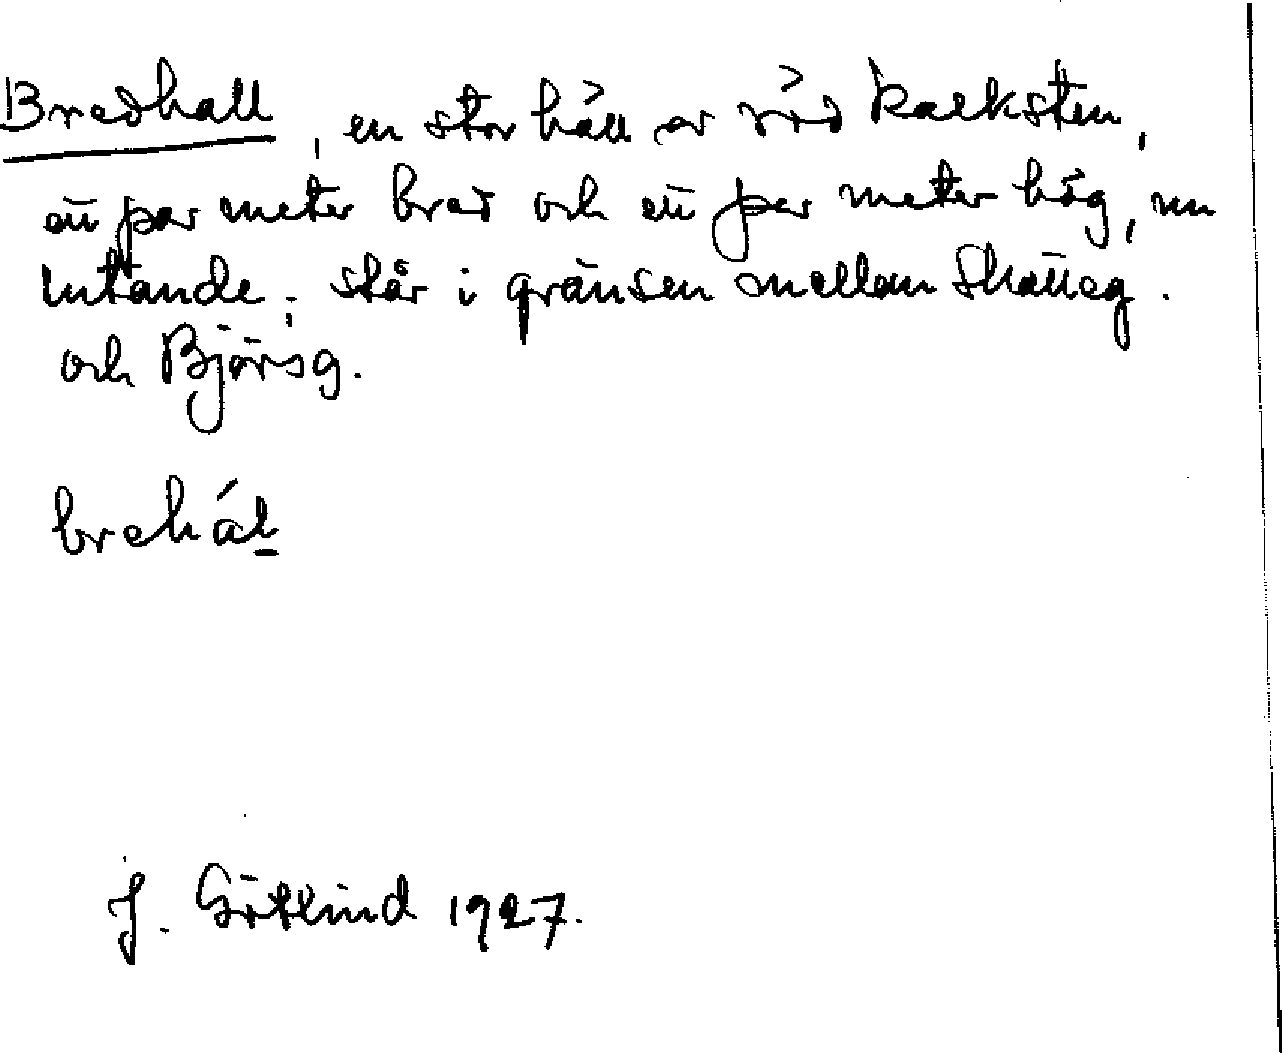 Bredhall, en stor häll av röd kalksten,
ett par meter bred och ett par meter hög, nu
lutande; står i gränsen mellan Skatteg.
och Björsg.
brehál
J. Götlind 1927.